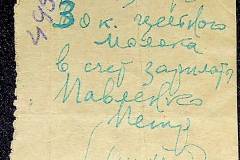 493
30 к. цельного
молока
в счет зарплаты
Павленко
Петр